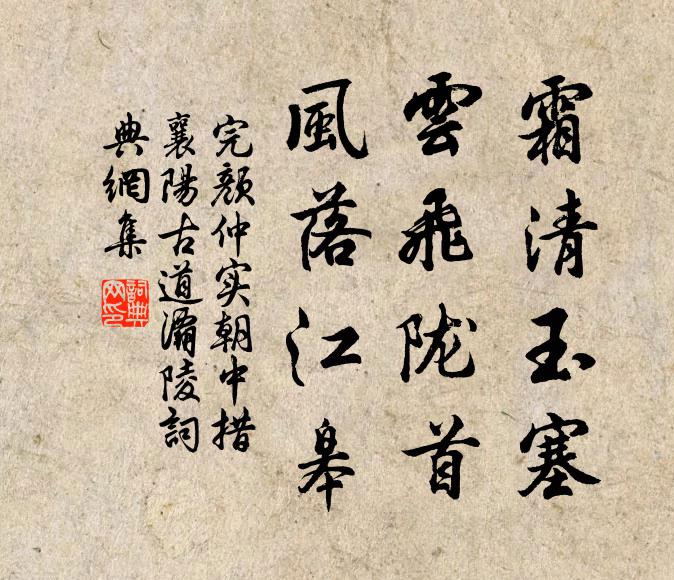 霜清玉塞
雲飛陇首
風落江皋
完颜仲实朝中措
襄陽古道灞陵詞
典網集
詞典網印